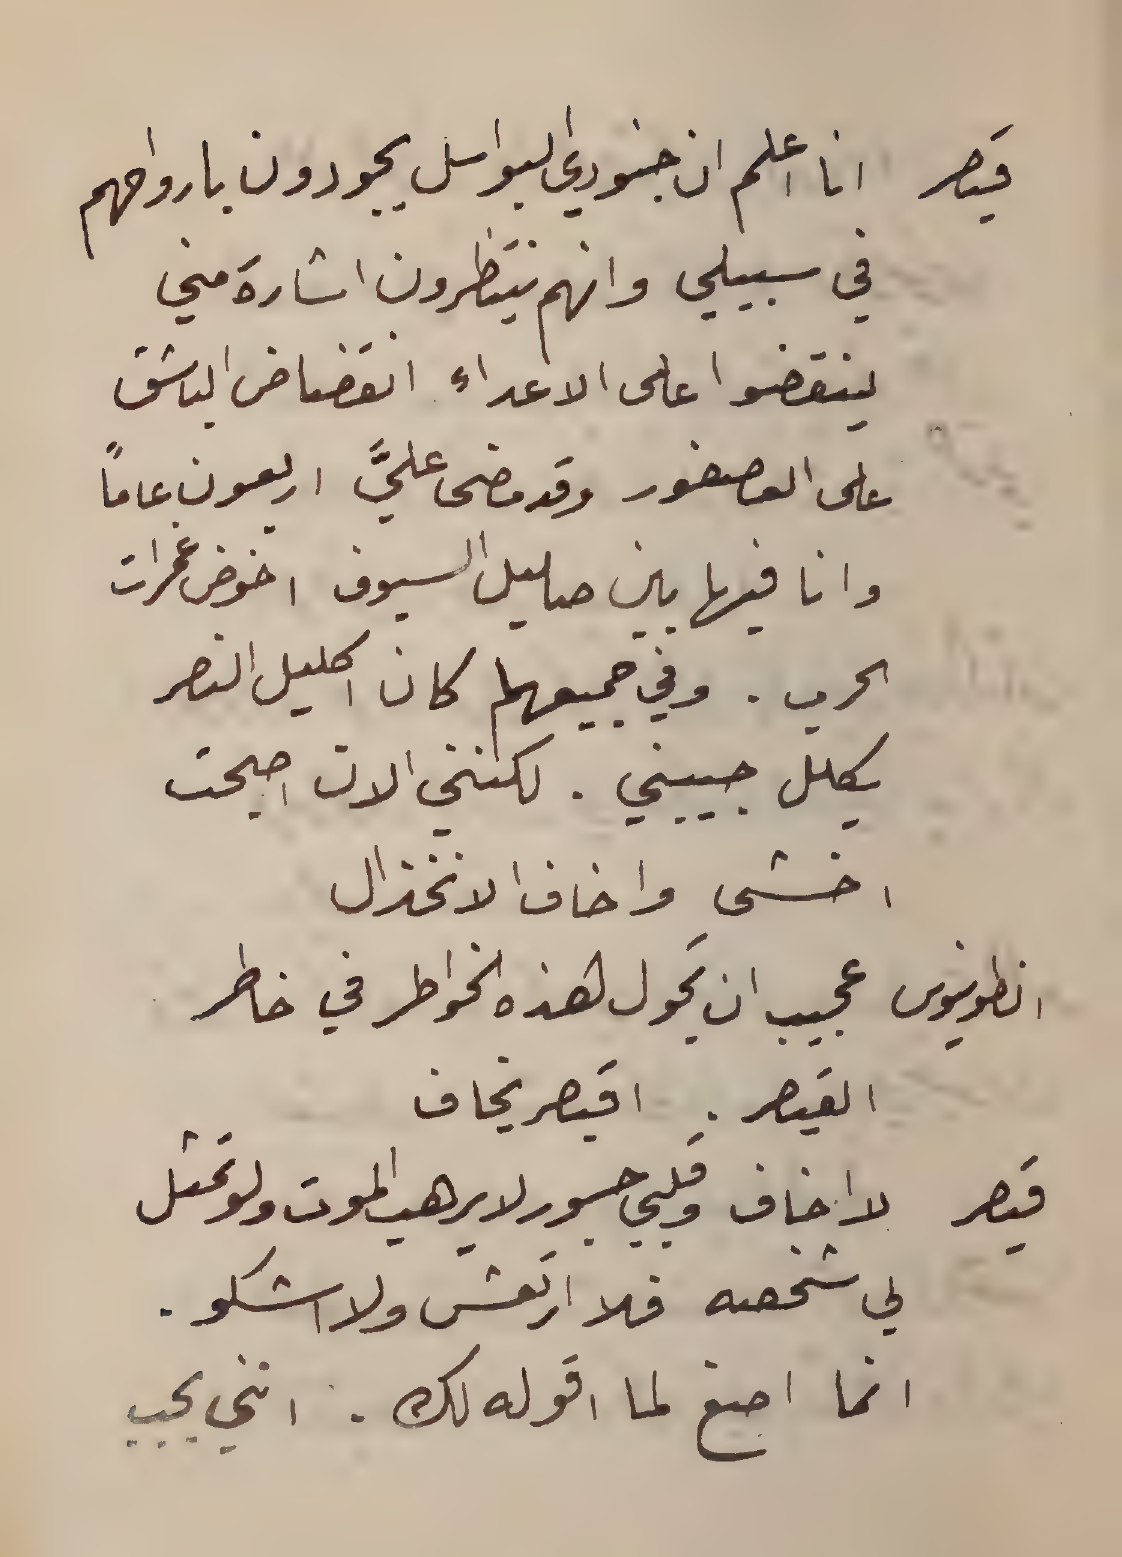 قيصر انا اعلم ان جنودي البواسل يجودون بارواحهم
في سبيلي وانهم ينتظرون اشارة مني
لينقضوا على الاعداء انقضاض الباشق
على العصفور وقد مضى عليَّ اربعون عاماً
وانا فيها بين صليل السيوف اخوض غمرات
الحرب . وفي جميعها كان اكليل النصر
يكلل جبيني . لكنني الان اصبحت
اخشى واخاف الانخذال
انطونيوس عجيب ان تجول هذه الخواطر في خاطر
القيصر . اقيصر يخاف
قيصر لا اخاف وقلبي جسور لا يرهب الموت ولو تمثل
لي شخصه فلا ارتعش ولا اشكو .
انما اصغ لما اقوله لك . انني يجب